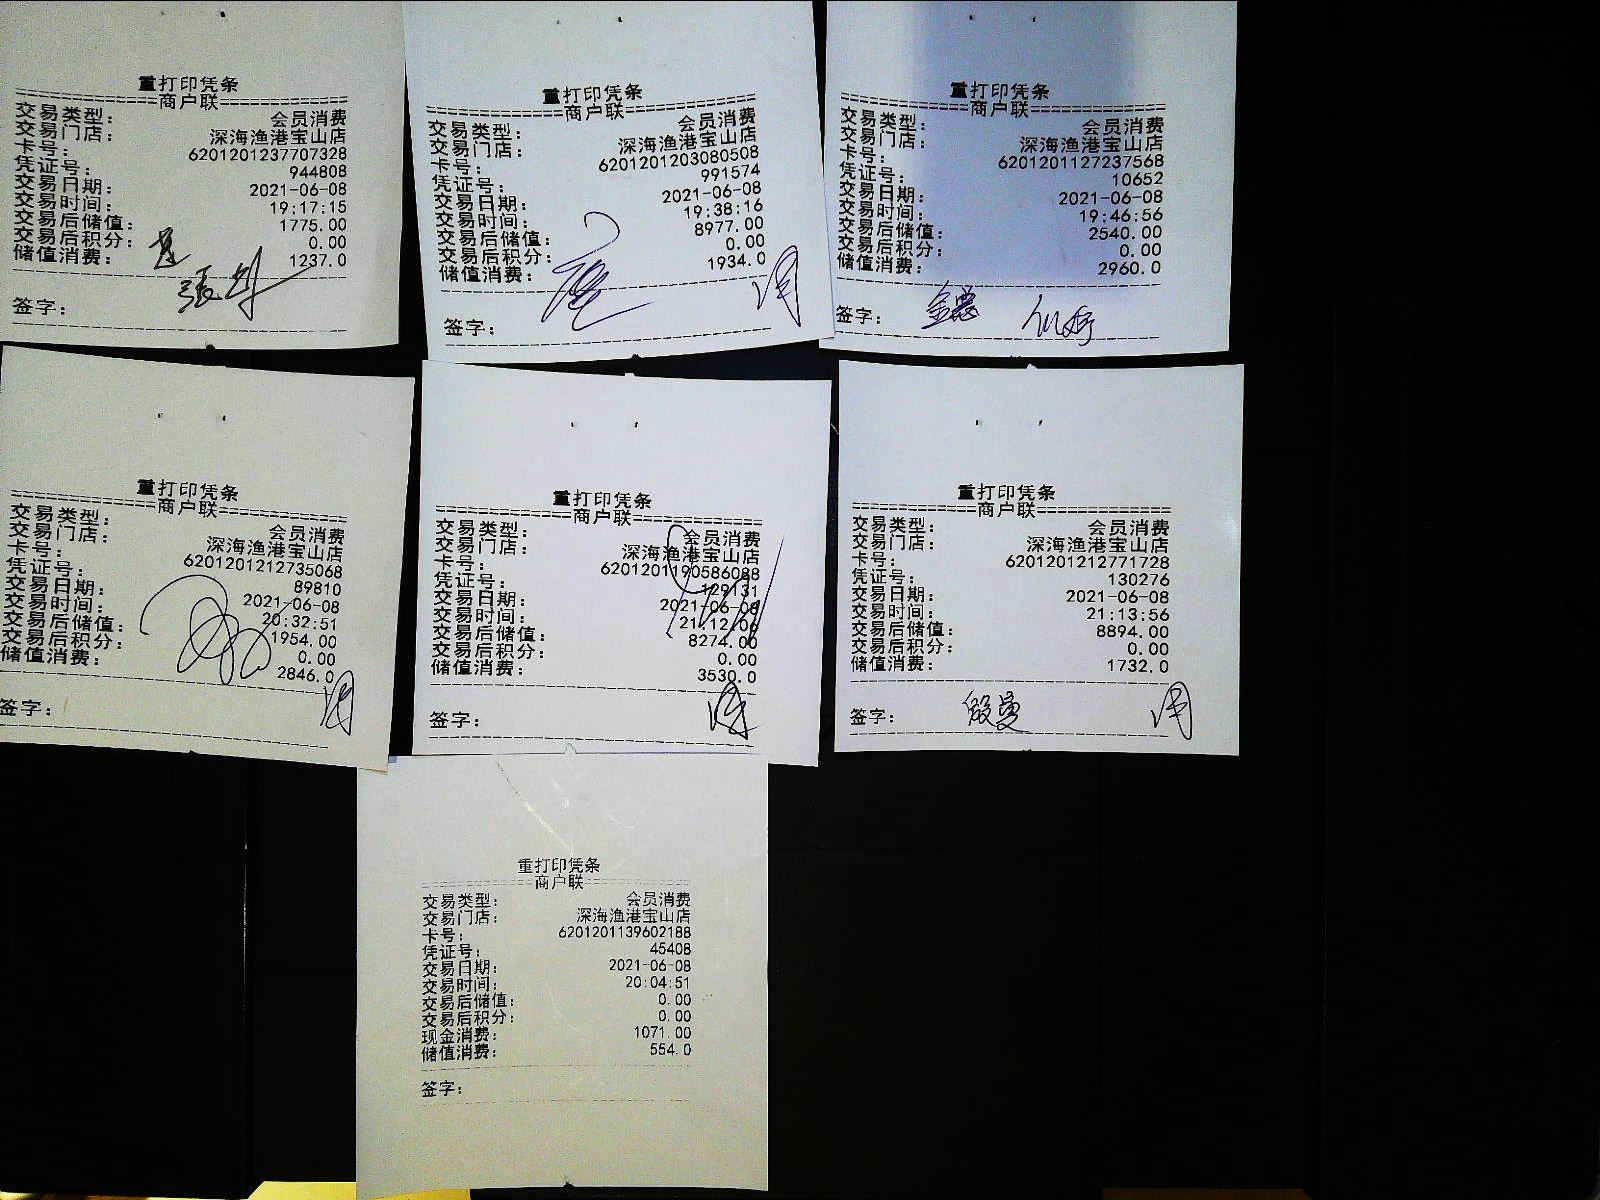 重打印凭条
================商户联================
交易类型： 会员消费
交易门店： 深海渔港宝山店
卡号： 6201201237707328
凭证号： 944808
交易日期： 2021-06-08
交易时间： 19:17:15
交易后储值： 1775.00
交易后积分： 0.00
储值消费： 1237.0
签字：
重打印凭条
================商户联================
交易类型： 会员消费
交易门店： 深海渔港宝山店
卡号： 6201201203080508
凭证号： 991574
交易日期： 2021-06-08
交易时间： 19:38:16
交易后储值： 8977.00
交易后积分： 0.00
储值消费： 1934.0
签字：
重打印凭条
================商户联================
交易类型： 会员消费
交易门店： 深海渔港宝山店
卡号： 6201201127237568
凭证号： 10652
交易日期： 2021-06-08
交易时间： 19:46:56
交易后储值： 2540.00
交易后积分： 0.00
储值消费： 2960.0
签字：
重打印凭条
================商户联================
交易类型： 会员消费
交易门店： 深海渔港宝山店
卡号： 6201201212735068
凭证号： 89810
交易日期： 2021-06-08
交易时间： 20:32:51
交易后储值： 1954.00
交易后积分： 0.00
储值消费： 2846.0
签字：
重打印凭条
================商户联================
交易类型： 会员消费
交易门店： 深海渔港宝山店
卡号： 6201201190586088
凭证号： 129131
交易日期： 2021-06-08
交易时间： 21:12:06
交易后储值： 8274.00
交易后积分： 0.00
储值消费： 3530.0
签字：
重打印凭条
================商户联================
交易类型： 会员消费
交易门店： 深海渔港宝山店
卡号： 6201201212771728
凭证号： 130276
交易日期： 2021-06-08
交易时间： 21:13:56
交易后储值： 8894.00
交易后积分： 0.00
储值消费： 1732.0
签字： 殷曼
重打印凭条
================商户联================
交易类型： 会员消费
交易门店： 深海渔港宝山店
卡号： 6201201139602188
凭证号： 45408
交易日期： 2021-06-08
交易时间： 20:04:51
交易后储值： 0.00
交易后积分： 0.00
现金消费： 1071.00
储值消费： 554.0
签字：